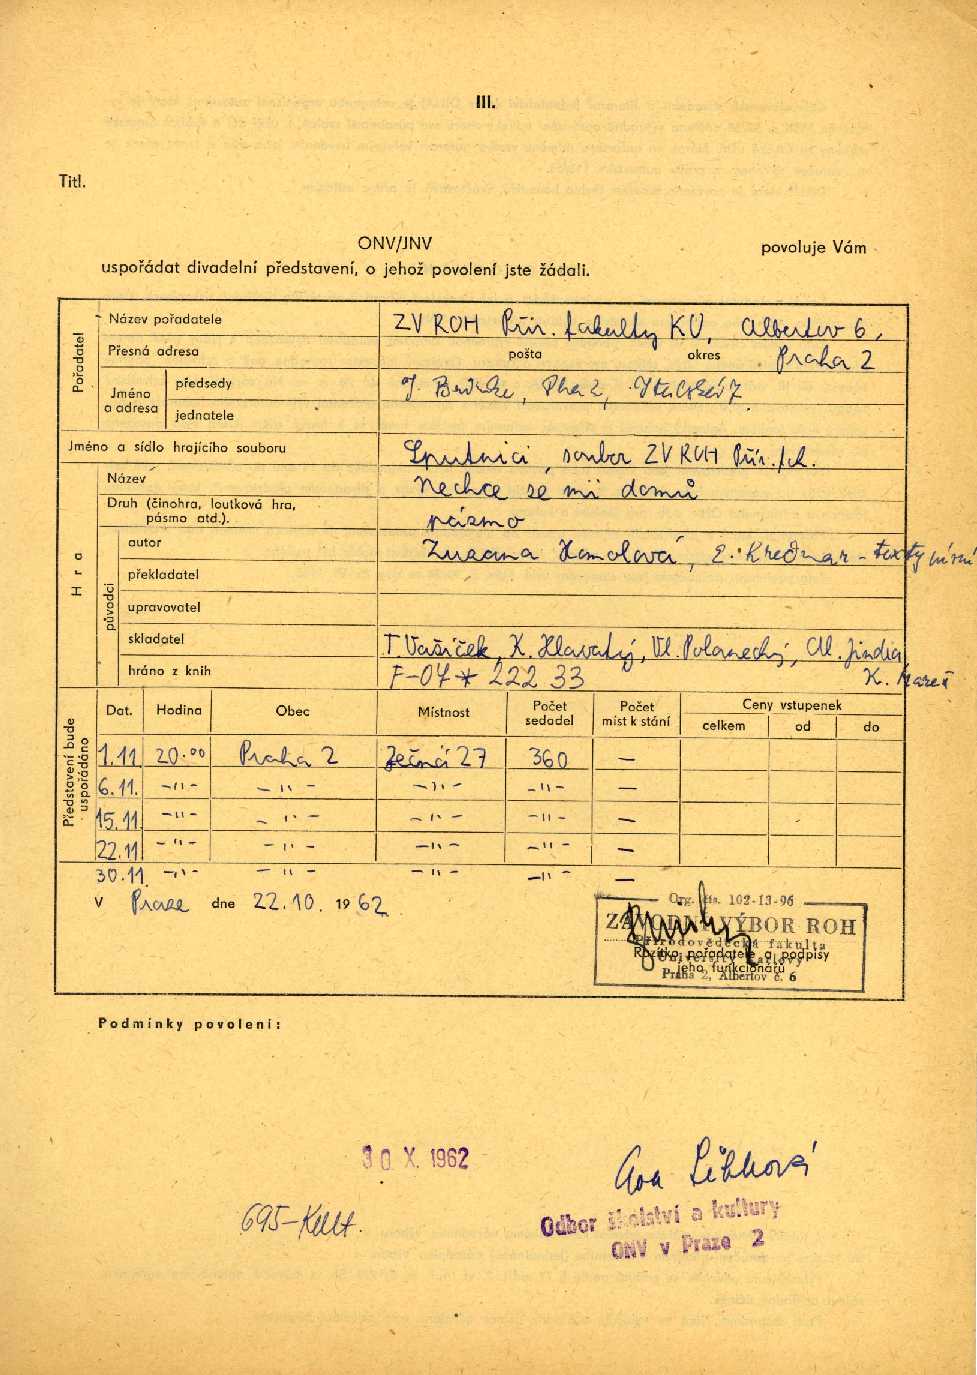 III.
Titl.
ONV/JNV povoluje Vám
uspořádat divadelní představení, o jehož povolení jste žádali.
Pořadatel
Název pořadatele ZV ROH Přír. fakulty KU, Albertov 6,
Přesná adresa pošta okres Praha 2
Jméno a adresa
předsedy J. Pha 2,
jednatele
Jméno a sídlo hrajícího souboru Sputnici, soubor ZV ROH Přír. fak.
Hra
Název Nechce se mi domů
Druh (činohra, loutková hra,
pásmo atd.). pásmo
původci
autor Zuzana Homolová, E. Krečmar - texty písní
překladatel
upravovatel
skladatel T. Vašíček, K. Hlavatý, Vl. Polanecký, M. Jindra
hráno z knih F-04* 222 33 K. Mareš
Představení bude uspořádáno
Dat. Hodina Obec Místnost Počet sedadel Počet míst k stání Ceny vstupenek
celkem od do
1.11. 20.00 Praha 2 Ječná 27 360 —
6.11. -"- -"- -"- -"- —
15.11. -"- -"- -"- -"- —
22.11. -"- -"- -"- -"- —
30.11. -"- -"- -"- -"- —
V Praze dne 22.10. 1962
Org. čís. 102-13-96
ZÁVODNÍ VÝBOR ROH
Přírodovědecká fakulta
University Karlovy
Praha 2, Albertov č. 6
Razítko pořadatele a podpisy
jeho funkcionářů
Podmínky povolení:
30. X. 1962
695-Kult.
Odbor školství a kultury
ONV v Praze 2